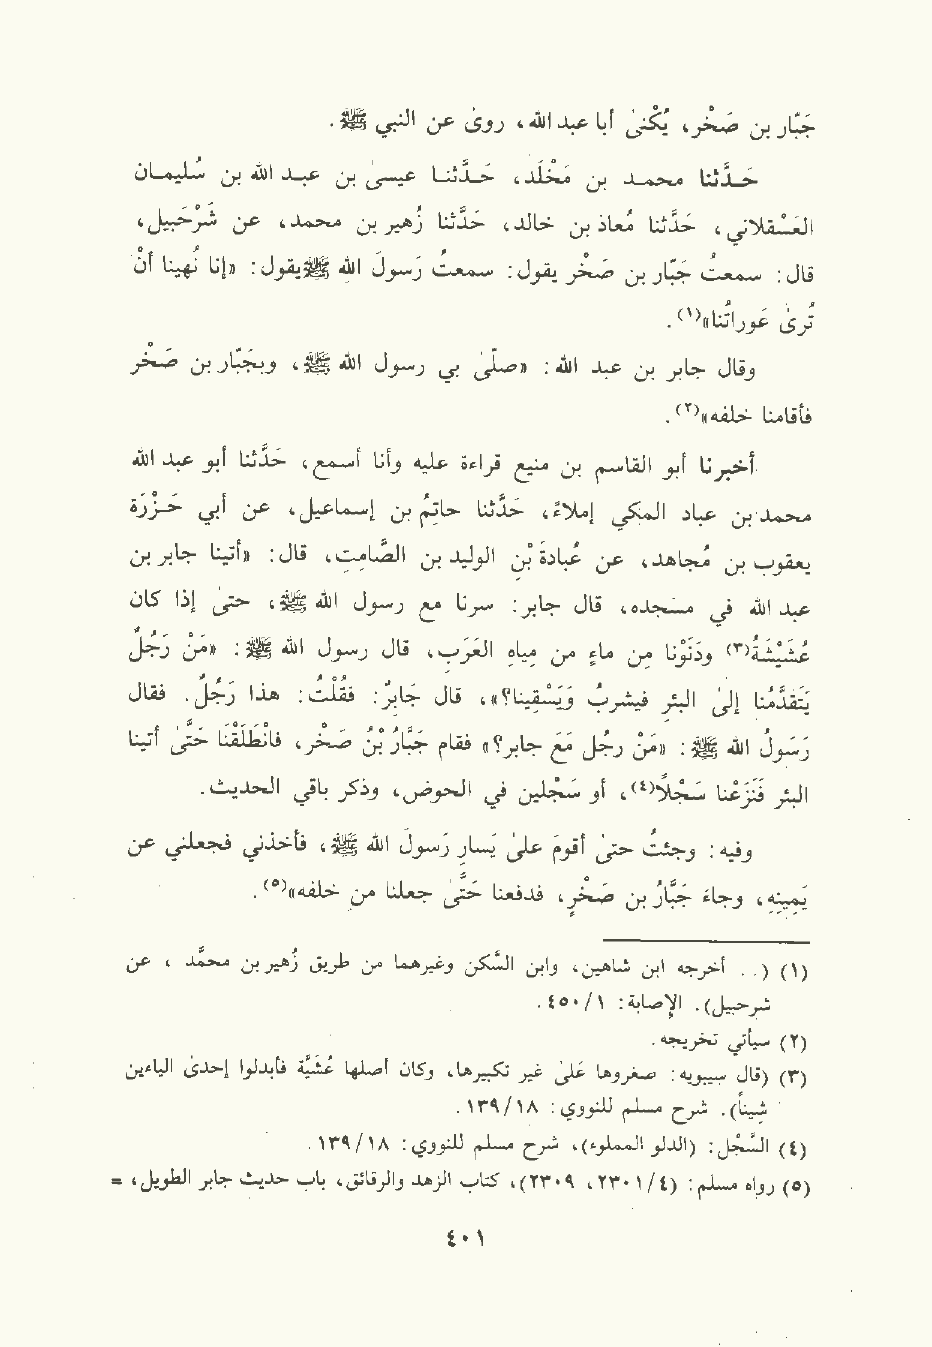 جَبّار بن صَخْر، يُكْنىٰ أبا عبدالله، روىٰ عن النبي ﷺ.
حَـدَّثنا محمـد بن مَخْلَد، حَـدَّثنـا عيسىٰ بن عبـد الله بن سُليمـان
العَسْقلاني، حَدَّثنا مُعاذ بن خالد، حَدَّثنا زُهير بن محمد، عن شَرْحَبيل،
قال: سمعتُ جَبّار بن صَخْر يقول: سمعتُ رسولَ الله ﷺ يقول: «إنا نُهينا أنْ
تُرىٰ عَوراتُنا»(١).
وقال جابر بن عبد الله: «صلّىٰ بي رسول الله ﷺ، وبجَبّار بن صَخْر
فأقامنا خلفه»(٢).
أخبرنا أبو القاسم بن منيع قراءة عليه وأنا أسمع، حَدَّثنا أبو عبد الله
محمد بن عباد المكي إملاءً، حَدَّثنا حاتِمُ بن إسماعيل، عن أبي حَـزْرَة
يعقوب بن مُجاهد، عن عُبادةَ بنِ الوليد بن الصّامِت، قال: «أتينا جابر بن
عبد الله في مسجده، قال جابر: سرنا مع رسول الله ﷺ، حتىٰ إذا كان
عُشَيْشَةُ(٣) ودَنَوْنا مِن ماءٍ من مياهِ العَرَب، قال رسول الله ﷺ: «مَنْ رَجُلٌ
يَتَقدَّمُنا إلىٰ البئر فيشربُ ويَسْقِينا؟»، قال جَابِرٌ: فقُلْتُ: هذا رَجُلٌ. فقال
رَسولُ الله ﷺ: «مَنْ رجُل مَعَ جابر؟» فقام جَبَّارُ بْنُ صَخْر، فانْطَلَقْنَا حتَّىٰ أتينا
البئر فَنَزَعْنا سَجْلاً(٤)، أو سَجْلين في الحوض، وذكر باقي الحديث.
وفيه: وجئتُ حتىٰ أقومَ علىٰ يَسارِ رَسولَ الله ﷺ، فأخذني فجعلني عن
يَمِينِهِ، وجاءَ جَبَّارُ بن صَخْرٍ، فدفعنا حَتَّىٰ جعلنا من خلفه»(٥).
(١) (.. أخرجه ابن شاهين، وابن السَّكن وغيرهما من طريق زُهير بن محمَّد ، عن
شرحبيل). الإصابة: ١/ ٤٥٠.
(٢) سيأتي تخريجه.
(٣) (قال سيبويه: صغروها علىٰ غير تكبيرها، وكان أصلها عُشَيَّة فأبدلوا إحدىٰ الياءين
شِيناً). شرح مسلم للنووي: ١٨/ ١٣٩.
(٤) السَّجْل: (الدلو المملوء)، شرح مسلم للنووي: ١٨/ ١٣٩.
(٥) رواه مسلم: (٤/ ٢٣٠١، ٢٣٠٩)، كتاب الزهد والرقائق، باب حديث جابر الطويل، =
٤٠١